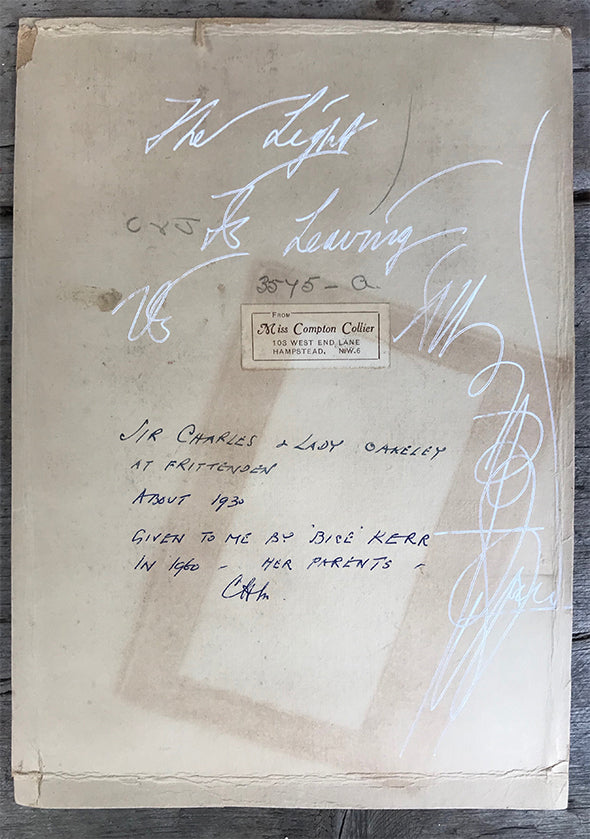 The Light
Is Leaving
Us
C & J
3545 - a
FROM
Miss Compton Collier
103 WEST END LANE
HAMPSTEAD, N.W.6
SIR CHARLES & LADY OAKELEY
AT FRITTENDEN
ABOUT 1930
GIVEN TO ME BY 'BICE' KERR
IN 1960 - HER PARENTS -